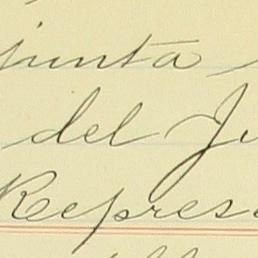 junta
del Ju
Repres